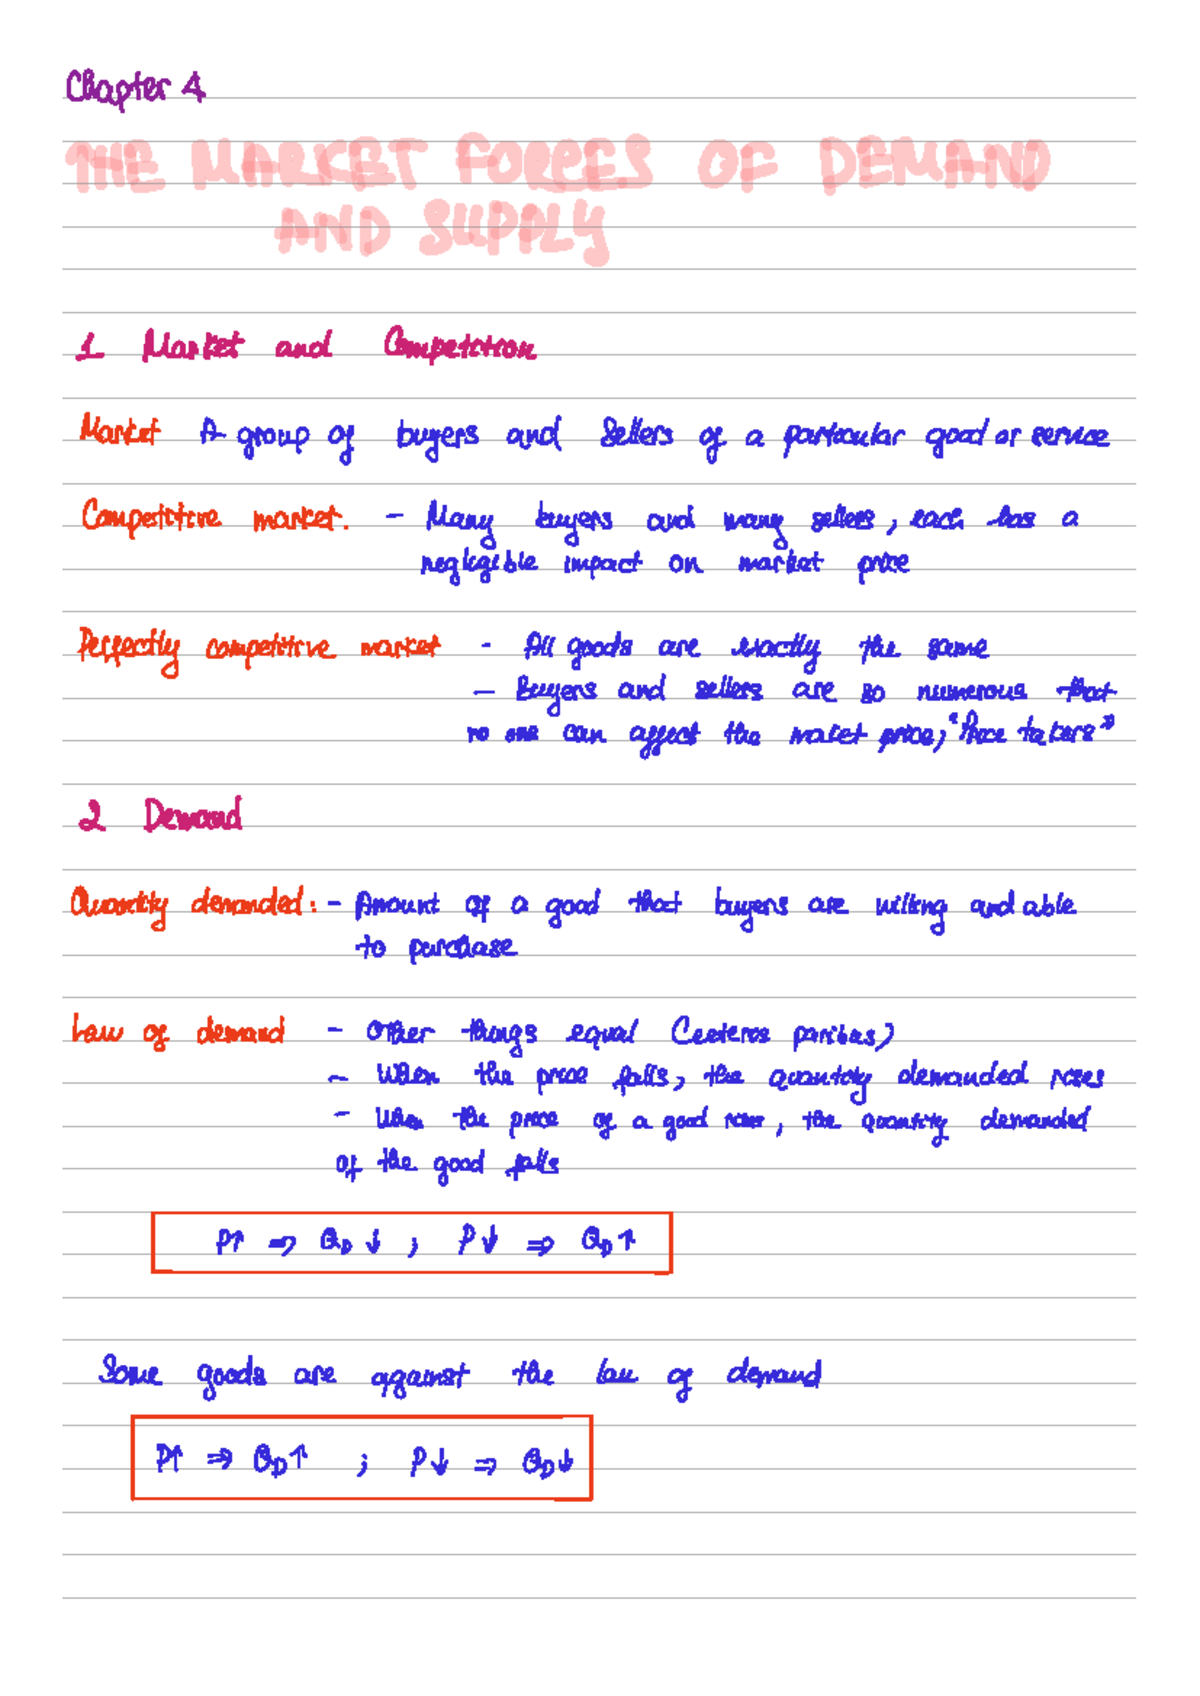 Chapter 4
THE MARKET FORCES OF DEMAND
AND SUPPLY
1 Market and Competition
Market A group of buyers and sellers of a particular good or service
Competitive market. - Many buyers and many sellers, each has a
negligible impact on market price
Perfectly competitive market - All goods are exactly the same
- Buyers and sellers are so numerous that
no one can affect the market price, "Price takers"
2 Demand
Quantity demanded: - Amount of a good that buyers are willing and able
to purchase
Law of demand - Other things equal (ceteros paribus)
- When the price falls, the quantity demanded rises
- When the price of a good rises, the quantity demanded
of the good falls
P↑ ⇒ QD ↓ ; P↓ ⇒ QD↑
Some goods are against the law of demand
P↑ ⇒ QD↑ ; P↓ ⇒ QD↓